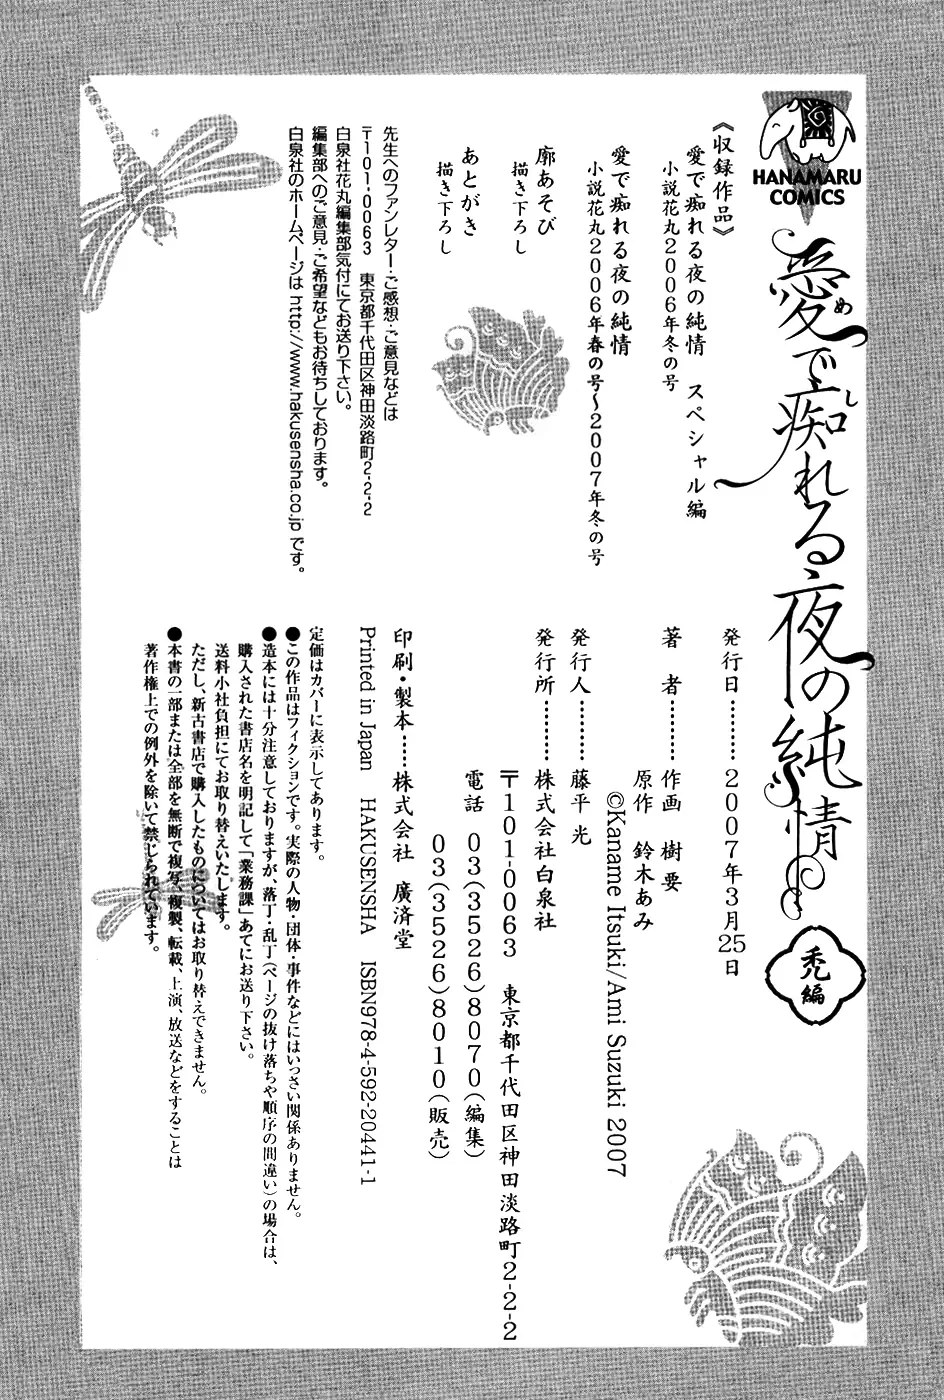 HANAMARU
COMICS
愛で痴れる夜の純情
め
し
禿編
《収録作品》
愛で痴れる夜の純情 スペシャル編
小説花丸2006年冬の号
愛で痴れる夜の純情
小説花丸2006年春の号〜2007年冬の号
廓あそび
描き下ろし
あとがき
描き下ろし
先生へのファンレター・ご感想・ご意見などは
〒101-0063 東京都千代田区神田淡路町2-2-2
白泉社花丸編集部気付にてお送り下さい。
編集部へのご意見・ご希望などもお待ちしております。
白泉社のホームページは http://www.hakusensha.co.jp です。
発行日………2007年3月25日
著 者………作画 樹 要
原作 鈴木あみ
©Kaname Itsuki/Ami Suzuki 2007
発行人………藤平 光
発行所………株式会社白泉社
〒101-0063 東京都千代田区神田淡路町2-2-2
電話 03(3526)8070(編集)
03(3526)8010(販売)
印刷・製本……株式会社 廣済堂
Printed in Japan HAKUSENSHA ISBN978-4-592-20441-1
定価はカバーに表示してあります。
●この作品はフィクションです。実際の人物・団体・事件などにはいっさい関係ありません。
●造本には十分注意しておりますが、落丁・乱丁(ページの抜け落ちや順序の間違い)の場合は、
購入された書店名を明記して「業務課」あてにお送り下さい。
送料小社負担にてお取り替えいたします。
ただし、新古書店で購入したものについてはお取り替えできません。
●本書の一部または全部を無断で複写、複製、転載、上演、放送などをすることは
著作権上での例外を除いて禁じられています。